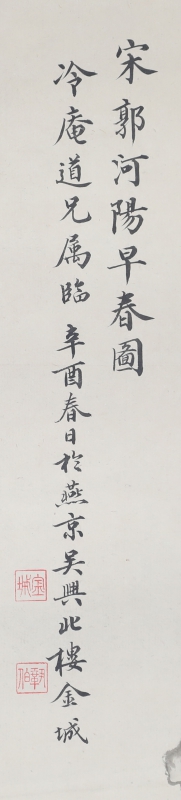 宋郭河陽早春圖
冷庵道兄属臨 辛酉春日於燕京吴興北樓金城
金城